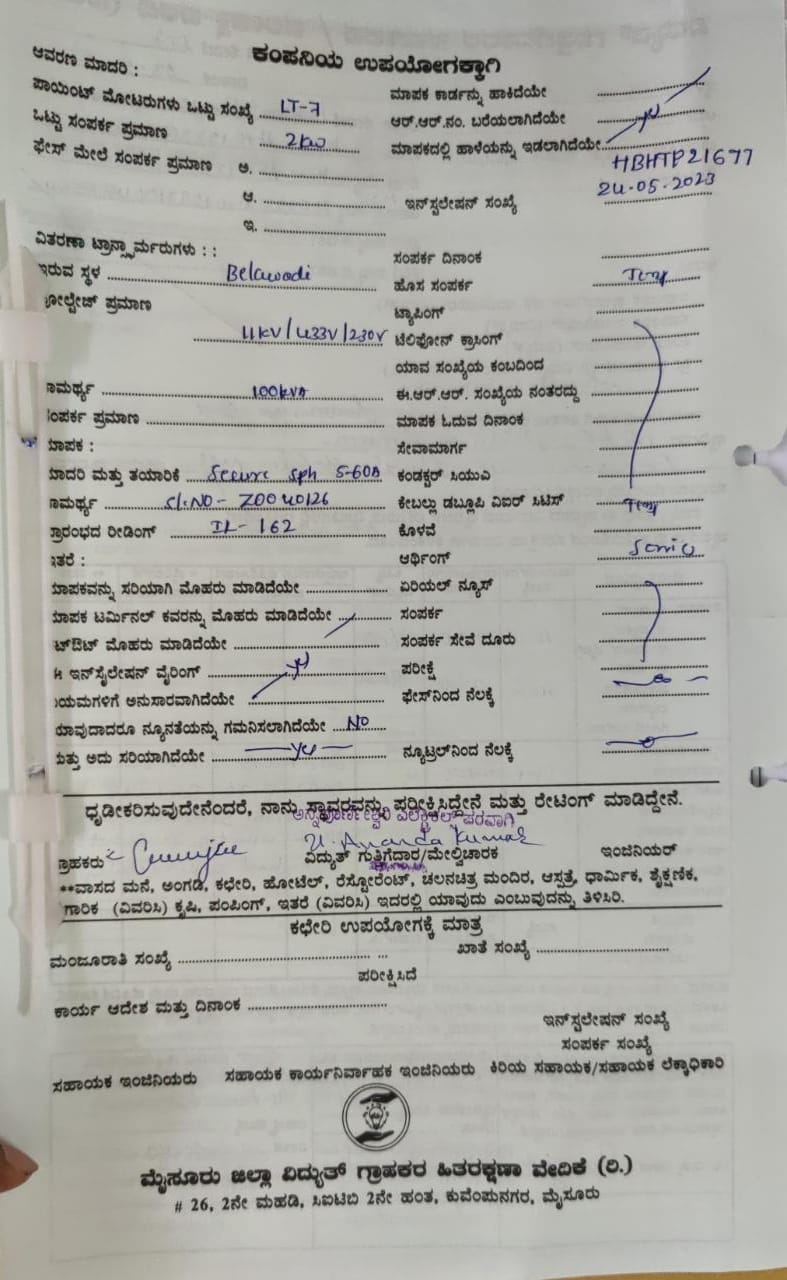 ಕಂಪನಿಯ ಉಪಯೋಗಕ್ಕಾಗಿ
ಆವರಣ ಮಾದರಿ :
ಮಾಪಕ ಕಾರ್ಡನ್ನು ಹಾಕಿದೆಯೇ
ಪಾಯಿಂಟ್ ಮೋಟರುಗಳು ಒಟ್ಟು ಸಂಖ್ಯೆ LT-7
ಆರ್.ಆರ್.ನಂ. ಬರೆಯಲಾಗಿದೆಯೇ
ಒಟ್ಟು ಸಂಪರ್ಕ ಪ್ರಮಾಣ 2kw
ಮಾಪಕದಲ್ಲಿ ಹಾಳೆಯನ್ನು ಇಡಲಾಗಿದೆಯೇ
ಫೇಸ್ ಮೇಲೆ ಸಂಪರ್ಕ ಪ್ರಮಾಣ ಅ.
HBHTP21677
ಆ.
ಇನ್‌ಸ್ಟಲೇಷನ್ ಸಂಖ್ಯೆ 24.05.2023
ಇ.
ವಿತರಣಾ ಟ್ರಾನ್ಸ್ಫಾರ್ಮರುಗಳು : :
ಸಂಪರ್ಕ ದಿನಾಂಕ
ಇರುವ ಸ್ಥಳ Belawadi
ಹೊಸ ಸಂಪರ್ಕ
ವೋಲ್ಟೇಜ್ ಪ್ರಮಾಣ
ಟ್ಯಾಪಿಂಗ್
11kV/433V/230V
ಟೆಲಿಫೋನ್ ಕ್ರಾಸಿಂಗ್
ಯಾವ ಸಂಖ್ಯೆಯ ಕಂಬದಿಂದ
ಾಮರ್ಥ್ಯ 100kVA
ಈ.ಆರ್.ಆರ್. ಸಂಖ್ಯೆಯ ನಂತರದ್ದು
ಸಂಪರ್ಕ ಪ್ರಮಾಣ
ಮಾಪಕ ಓದುವ ದಿನಾಂಕ
ಮಾಪಕ :
ಸೇವಾಮಾರ್ಗ
ಮಾದರಿ ಮತ್ತು ತಯಾರಿಕೆ Secure Sph 5-60A
ಕಂಡಕ್ಟರ್ ಸಿಯುವಿ
ಾಮರ್ಥ್ಯ Sl.NO- Z0040126
ಕೇಬಲ್ಲು ಡಬ್ಲೂಪಿ ವಿಐರ್ ಸಿಟಿಸ್
ಪ್ರಾರಂಭದ ರೀಡಿಂಗ್ IR- 162
ಕೊಳವೆ
ಇತರೆ :
ಆರ್ಥಿಂಗ್
ಮಾಪಕವನ್ನು ಸರಿಯಾಗಿ ಮೊಹರು ಮಾಡಿದೆಯೇ
ಏರಿಯಲ್ ನ್ಯೂಸ್
ಮಾಪಕ ಟರ್ಮಿನಲ್ ಕವರನ್ನು ಮೊಹರು ಮಾಡಿದೆಯೇ
ಸಂಪರ್ಕ
ಟ್‌ಔಟ್ ಮೊಹರು ಮಾಡಿದೆಯೇ
ಸಂಪರ್ಕ ಸೇವೆ ದೂರು
ಇನ್‌ಸೈಲೇಷನ್ ವೈರಿಂಗ್
ಪರೀಕ್ಷೆ
ನಿಯಮಗಳಿಗೆ ಅನುಸಾರವಾಗಿದೆಯೇ yes
ಫೇಸ್‌ನಿಂದ ನೆಲಕ್ಕೆ
ಯಾವುದಾದರೂ ನ್ಯೂನತೆಯನ್ನು ಗಮನಿಸಲಾಗಿದೆಯೇ NO
ಮತ್ತು ಅದು ಸರಿಯಾಗಿದೆಯೇ yes
ನ್ಯೂಟ್ರಲ್‌ನಿಂದ ನೆಲಕ್ಕೆ
ಧೃಡೀಕರಿಸುವುದೇನೆಂದರೆ, ನಾನು ಸ್ಥಾವರವನ್ನು ಪರೀಕ್ಷಿಸಿದ್ದೇನೆ ಮತ್ತು ರೇಟಿಂಗ್ ಮಾಡಿದ್ದೇನೆ.
ಅನ್ನಪೂರ್ಣೇಶ್ವರಿ ಎಲೆಕ್ಟ್ರಿಕಲ್ ಪರವಾಗಿ
Ananda Kumar
ಗ್ರಾಹಕರು
ವಿದ್ಯುತ್ ಗುತ್ತಿಗೆದಾರ/ಮೇಲ್ವಿಚಾರಕ
ಇಂಜಿನಿಯರ್
**ವಾಸದ ಮನೆ, ಅಂಗಡಿ, ಕಛೇರಿ, ಹೋಟೆಲ್, ರೆಸ್ಟೋರೆಂಟ್, ಚಲನಚಿತ್ರ ಮಂದಿರ, ಆಸ್ಪತ್ರೆ, ಧಾರ್ಮಿಕ, ಶೈಕ್ಷಣಿಕ,
ಗಾರಿಕ (ವಿವರಿಸಿ) ಕೃಷಿ, ಪಂಪಿಂಗ್, ಇತರೆ (ವಿವರಿಸಿ) ಇದರಲ್ಲಿ ಯಾವುದು ಎಂಬುವುದನ್ನು ತಿಳಿಸಿರಿ.
ಕಛೇರಿ ಉಪಯೋಗಕ್ಕೆ ಮಾತ್ರ
ಮಂಜೂರಾತಿ ಸಂಖ್ಯೆ
ಖಾತೆ ಸಂಖ್ಯೆ
ಪರೀಕ್ಷಿಸಿದೆ
ಕಾರ್ಯ ಆದೇಶ ಮತ್ತು ದಿನಾಂಕ
ಇನ್‌ಸ್ಟಲೇಷನ್ ಸಂಖ್ಯೆ
ಸಂಪರ್ಕ ಸಂಖ್ಯೆ
ಸಹಾಯಕ ಇಂಜಿನಿಯರು ಸಹಾಯಕ ಕಾರ್ಯನಿರ್ವಾಹಕ ಇಂಜಿನಿಯರು ಕಿರಿಯ ಸಹಾಯಕ/ಸಹಾಯಕ ಲೆಕ್ಕಾಧಿಕಾರಿ
ಮೈಸೂರು ಜಿಲ್ಲಾ ವಿದ್ಯುತ್ ಗ್ರಾಹಕರ ಹಿತರಕ್ಷಣಾ ವೇದಿಕೆ (ರಿ.)
# 26, 2ನೇ ಮಹಡಿ, ಸಿಐಟಿಬಿ 2ನೇ ಹಂತ, ಕುವೆಂಪುನಗರ, ಮೈಸೂರು